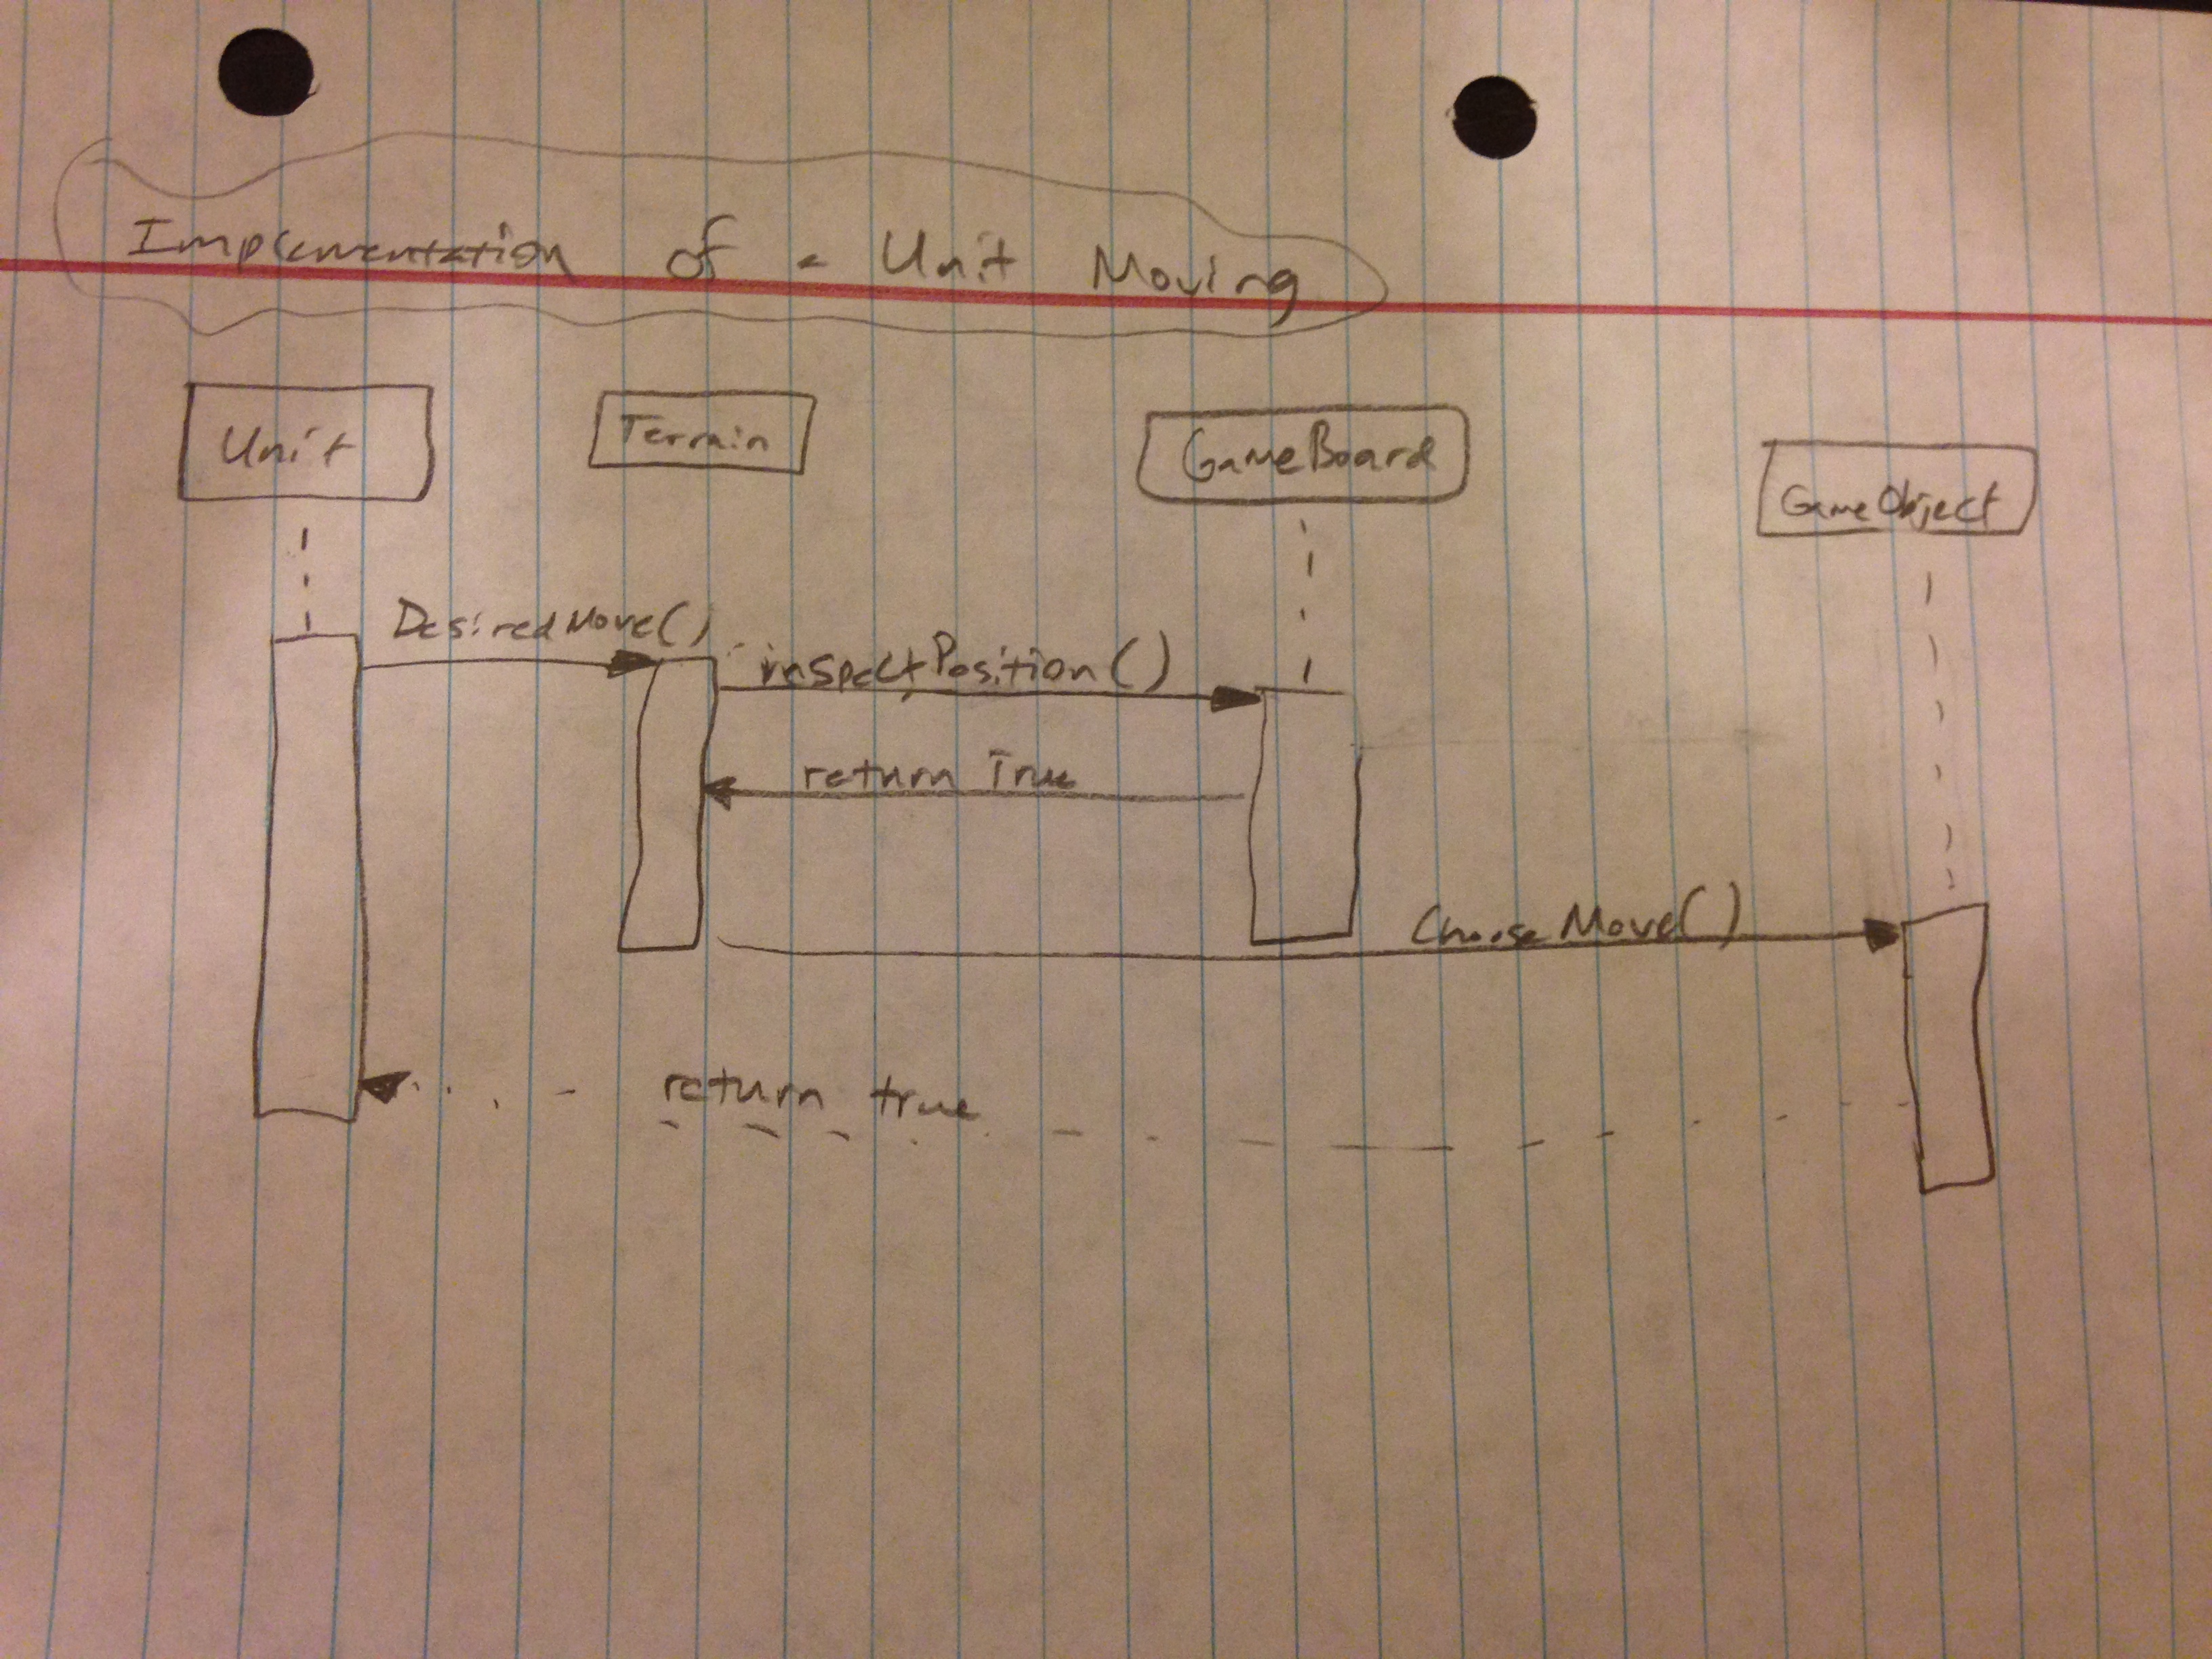 Implementation of a Unit Moving
Unit
Terrain
GameBoard
GameObject
DesiredMove()
inspectPosition()
return True
ChooseMove()
return true